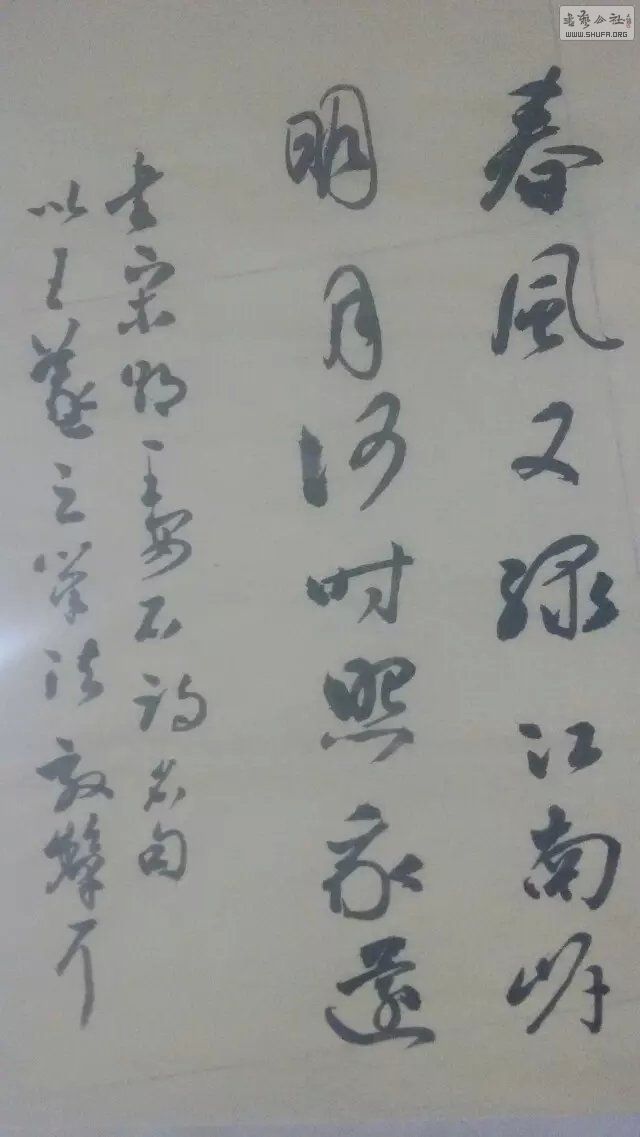 春風又綠江南岸
明月何時照我還
書宋明王安石詩名句
以王羲之筆法
書艺公社
WWW.SHUFA.ORG